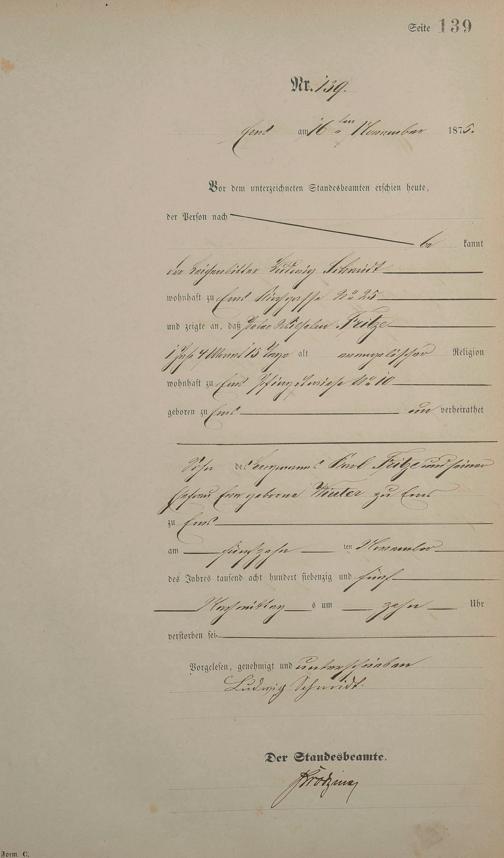 Seite 139
Nr. 139.
Ems am 16ten November 1875.
Vor dem unterzeichneten Standesbeamten erschien heute,
der Person nach
be kannt
der Leichenbitter Ludwig Schmidt
wohnhaft zu Ems No 25
und zeigte an, daß Wilhelm Fritze
1 Jahr 4 Monat 15 Tage alt evangelischer Religion
wohnhaft zu Ems No 10
geboren zu Ems un verheirathet
Sohn des Bergmanns Karl Fritze und seiner
Ehefrau geborne Winter zu Ems
zu Ems
am fünfzehn ten November
des Jahres tausend acht hundert siebenzig und fünf
Nachmittag s um zehn Uhr
verstorben sei
Vorgelesen, genehmigt und unterschrieben
Ludwig Schmidt.
Der Standesbeamte.
Form. C.